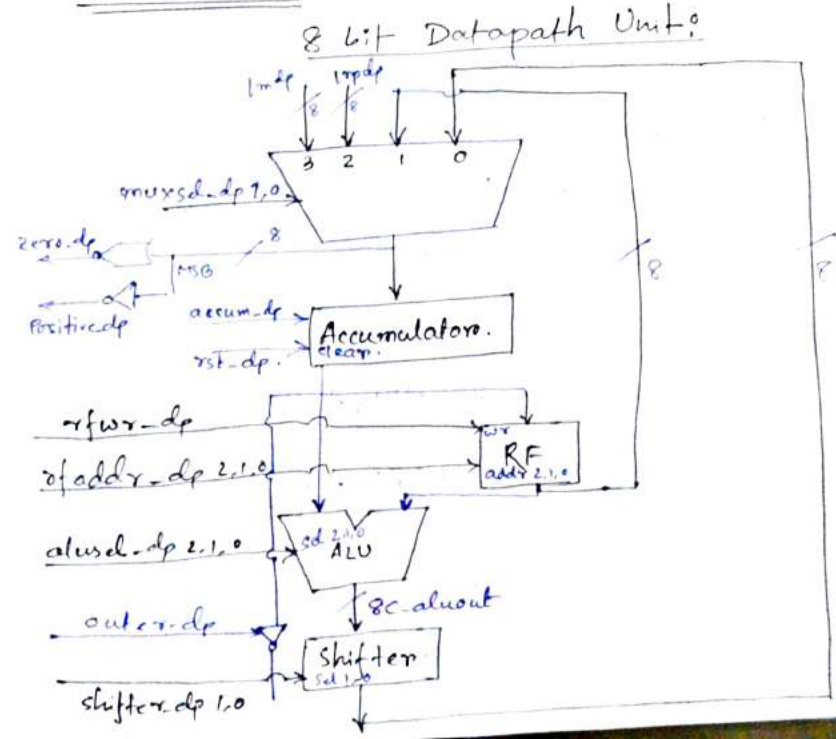 8 bit Datapath Unit:
Imdp Irpdp
8 8
3 2 1 0
muxsel-dp 1,0
zero-dp
8
MSB
Positive-dp
8
8
accum-dp
Accumulator.
clear.
rst-dp.
rfwr-dp
wr
RF
rfaddr-dp 2,1,0
addr 2,1,0
alusel-dp 2,1,0
sel 2,1,0
ALU
8 C-aluout
outer-dp
Shifter
Sel 1,0
shifter-dp 1,0